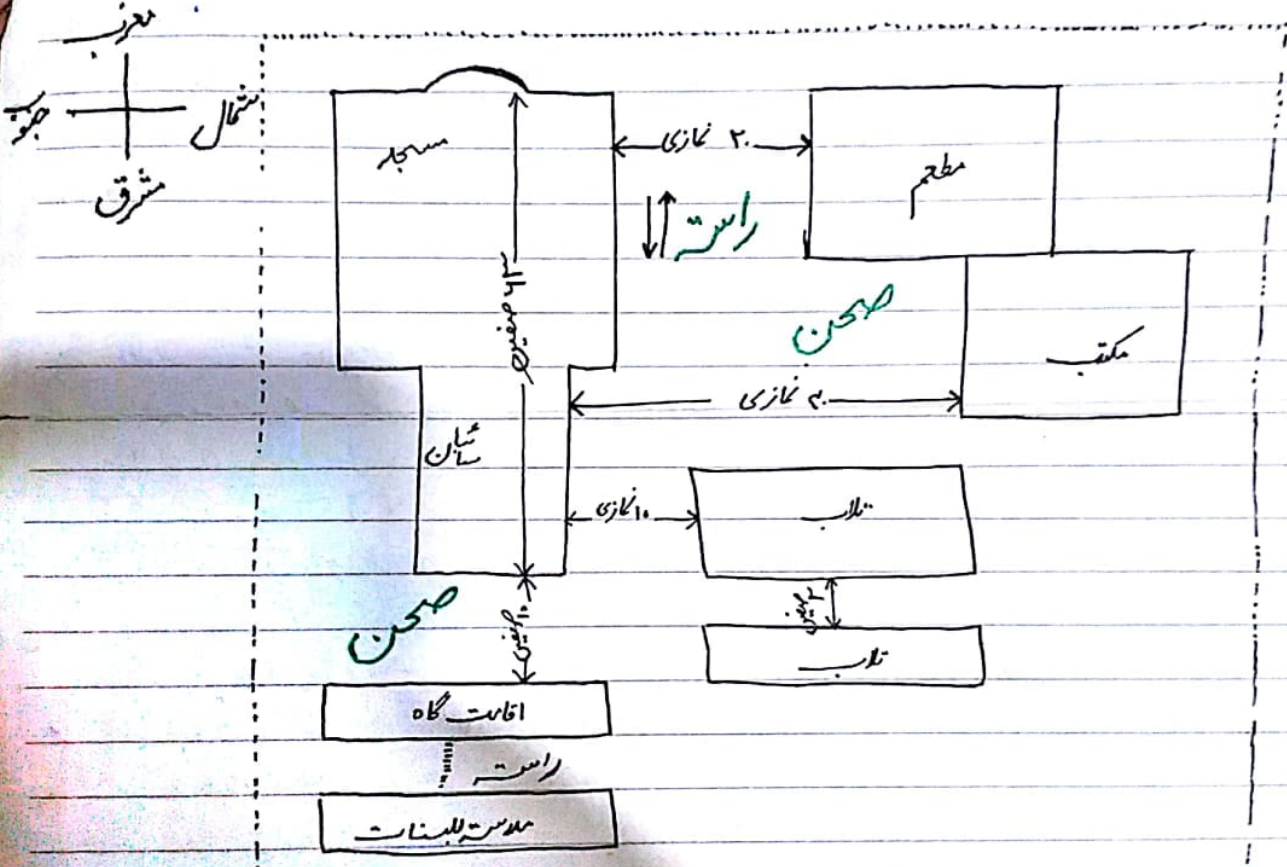 مغرب
جنوب
شمال
مشرق
مسجد
۲۰ نمازی
مطعم
راستہ
صفیں
صحن
مکتب
نمازی
سائبان
۱۰ نمازی
تلاب
صفیں
تلاب
صحن
۱۰ صفیں
اقامت گاہ
راستہ
مدرستہ للبنات